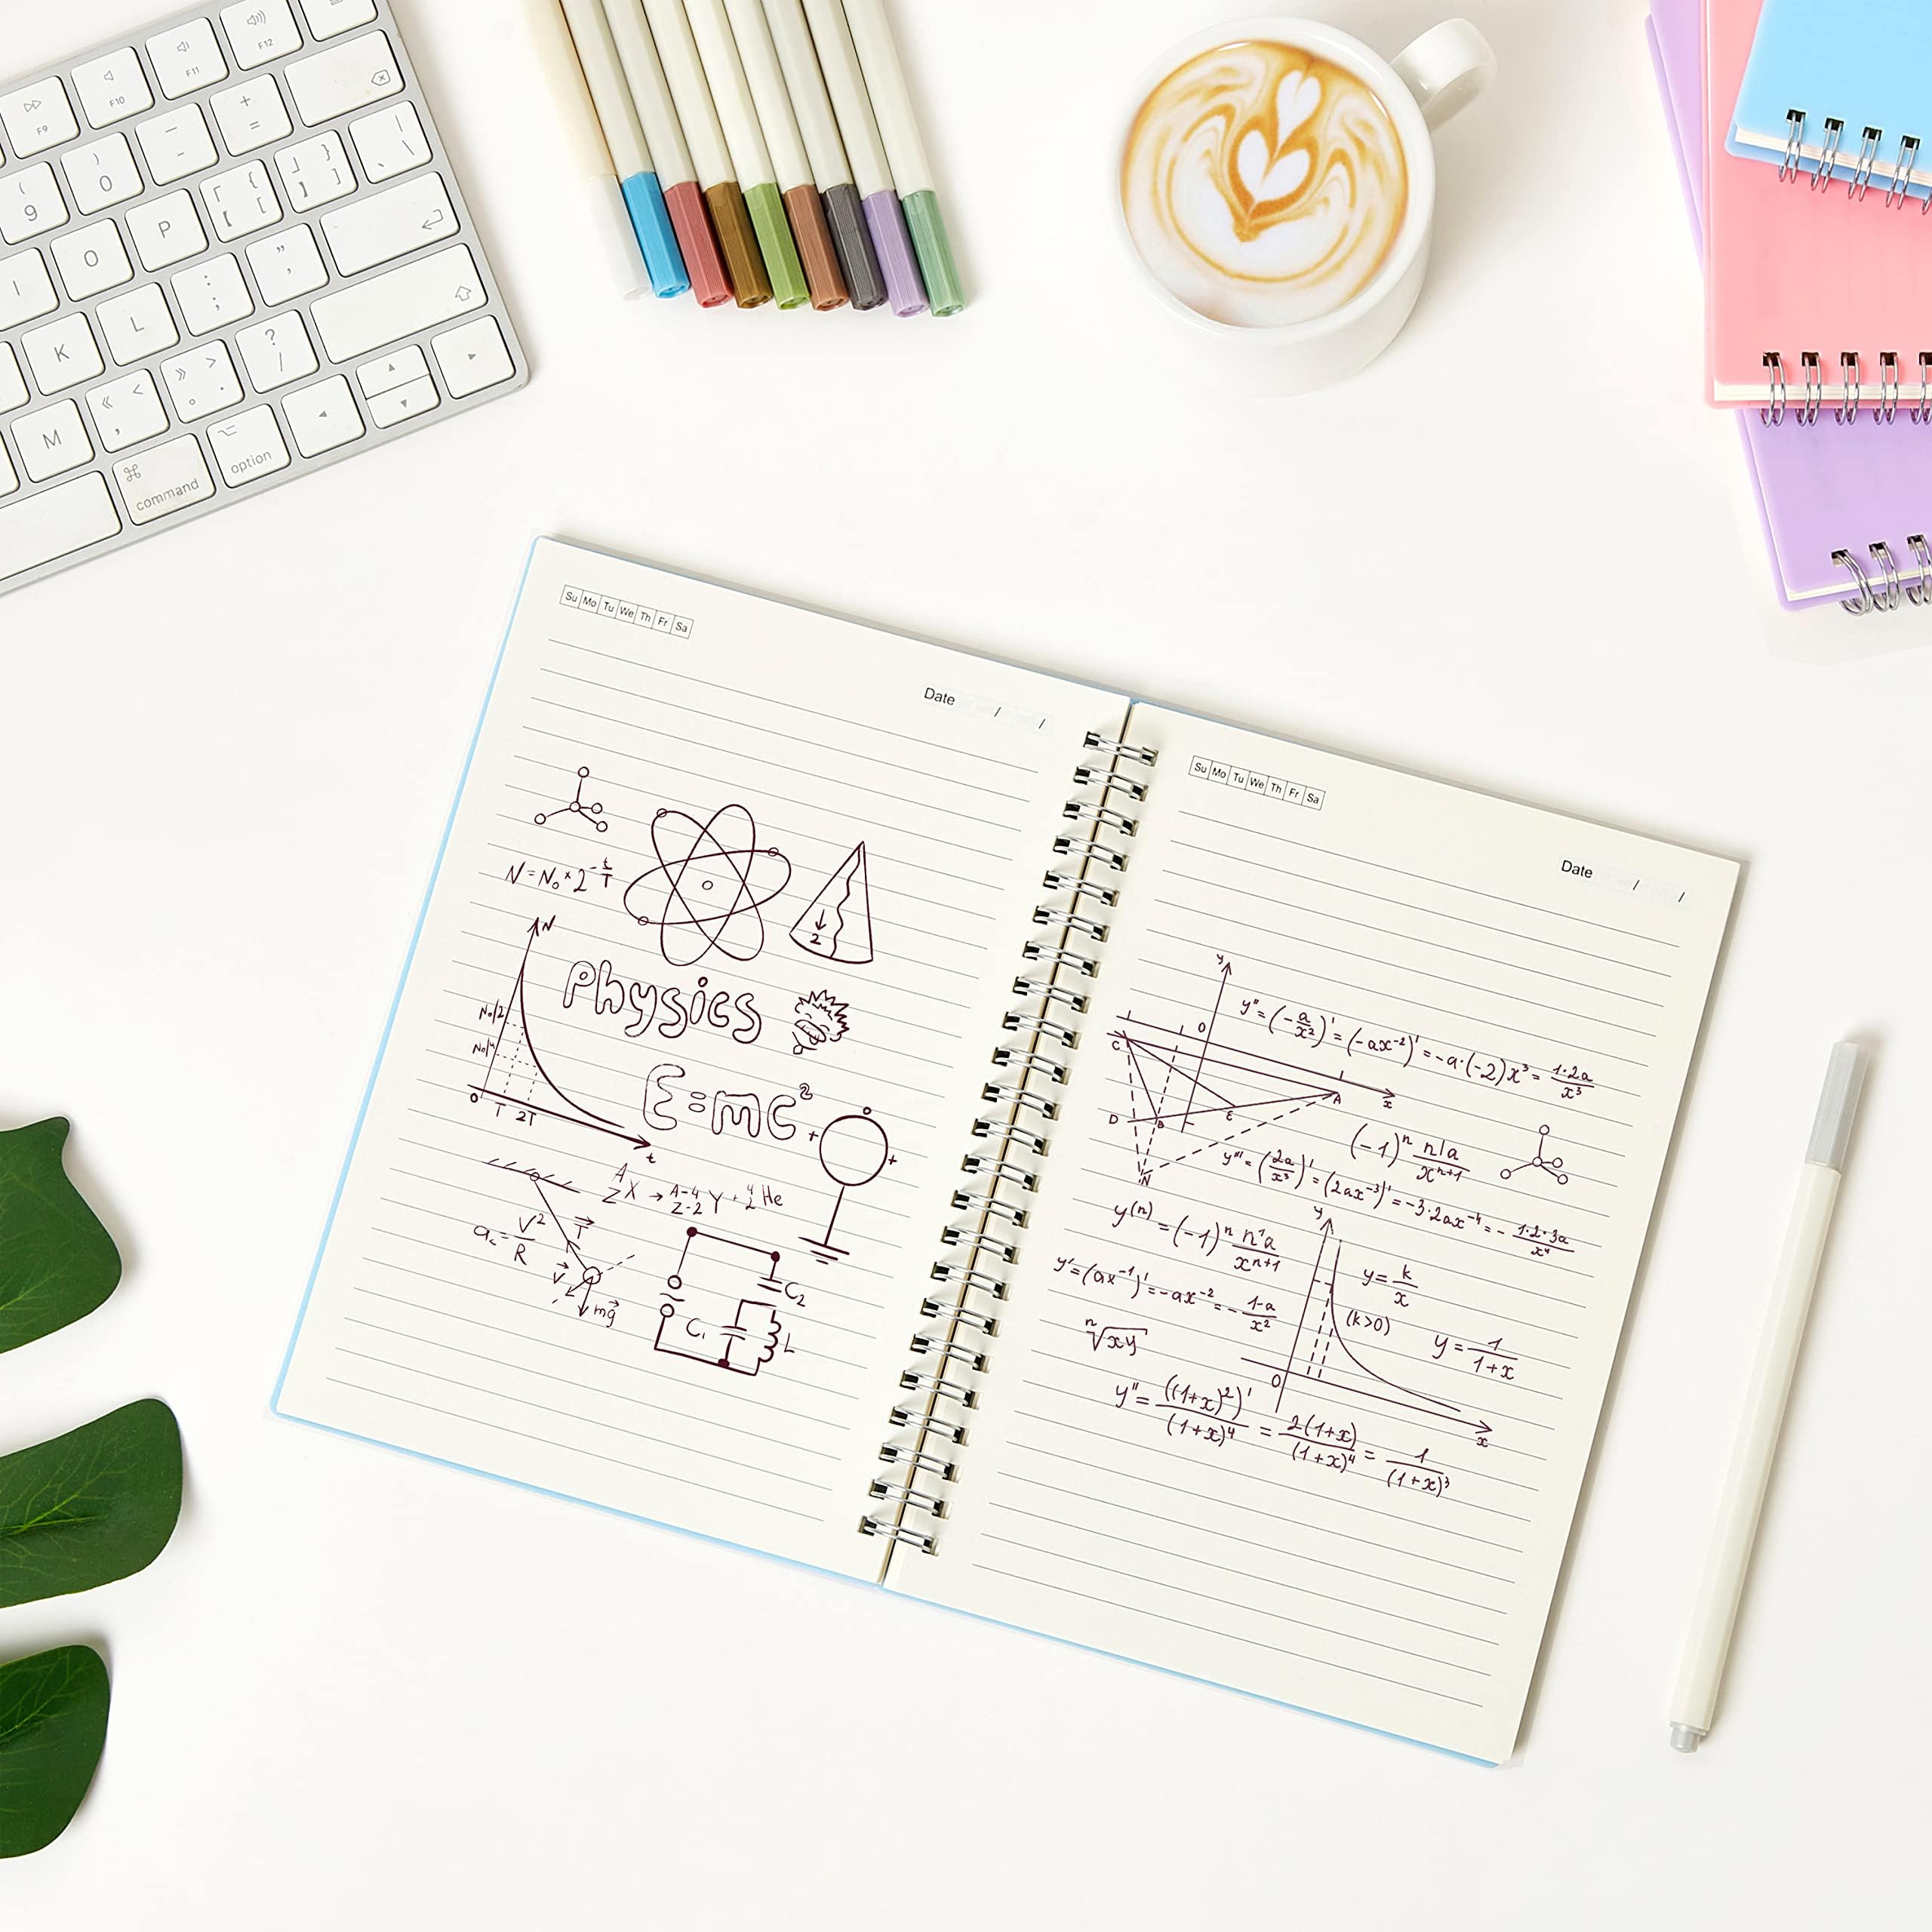 F9 F10 F11 F12
+ =
_ -
) 0
( 9
| \
} ]
{ [
P
O
I
" '
: ;
L
K
? /
> .
< ,
M
option
command
Su Mo Tu We Th Fr Sa
Date / /
N = N₀ × 2^(-t/T)
2
N
N₀/2
N₀/4
0 T 2T t
Physics
E=mc²
+ +
A Z X → A-4 Z-2 Y + 4 2 He
a_c = V²/R
T
V
mg
C₂
C₁
L
Su Mo Tu We Th Fr Sa
Date / /
y
0
x
C
D B E A
N
y'' = (-a/x²)' = (-ax⁻²)' = -a·(-2)x³ = 1·2a/x³
(-1)ⁿ n!a/xⁿ⁺¹
y''' = (2a/x³)' = (2ax⁻³)' = -3·2ax⁻⁴ = - 1·2·3a/x⁴
y⁽ⁿ⁾ = (-1)ⁿ n"a/xⁿ⁺¹
y' = (ax⁻¹)' = -ax⁻² = - 1-a/x²
ⁿ√xy
y
y = k/x
(k>0)
y = 1/1+x
0
x
y'' = ((1+x)²)'/(1+x)⁴ = 2(1+x)/(1+x)⁴ = 1/(1+x)³